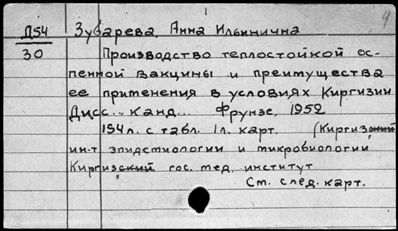 Д54 Зубарева, Анна Ильинична 4
30 Производство теплостойкой ос-
пенной вакцины и преимущества
ее применения в условиях Киргизии
Дисс... канд... Фрунзе, 1952
194л. с табл. 1л. карт. (Киргизский
ин-т эпидемиологии и микробиологии
Киргизский гос. мед. институт
См. след. карт.